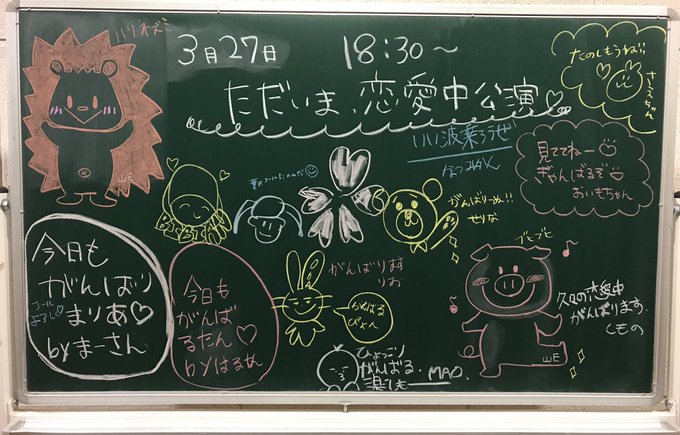 ハリネズミ
3月27日 18:30～
ただいま、恋愛中公演
たのしもうね!!
さーえちゃん
いい波乗ろうぜ
見ててねー♡
ぎゃんばるぞ
おいもちゃん
がんばりーぬ!!
せりな
今日も
がんばり
まりあ♡
by まーさん
コール
よろし
今日も
がんばる
るたん♡
by はるたん
がんばります
りお
がんばる
ぴょん
ひょっこり
がんばる。
楽しも
MAO.
ブヒブヒ
久々の恋愛中
がんばります。
くもの
山E
山E